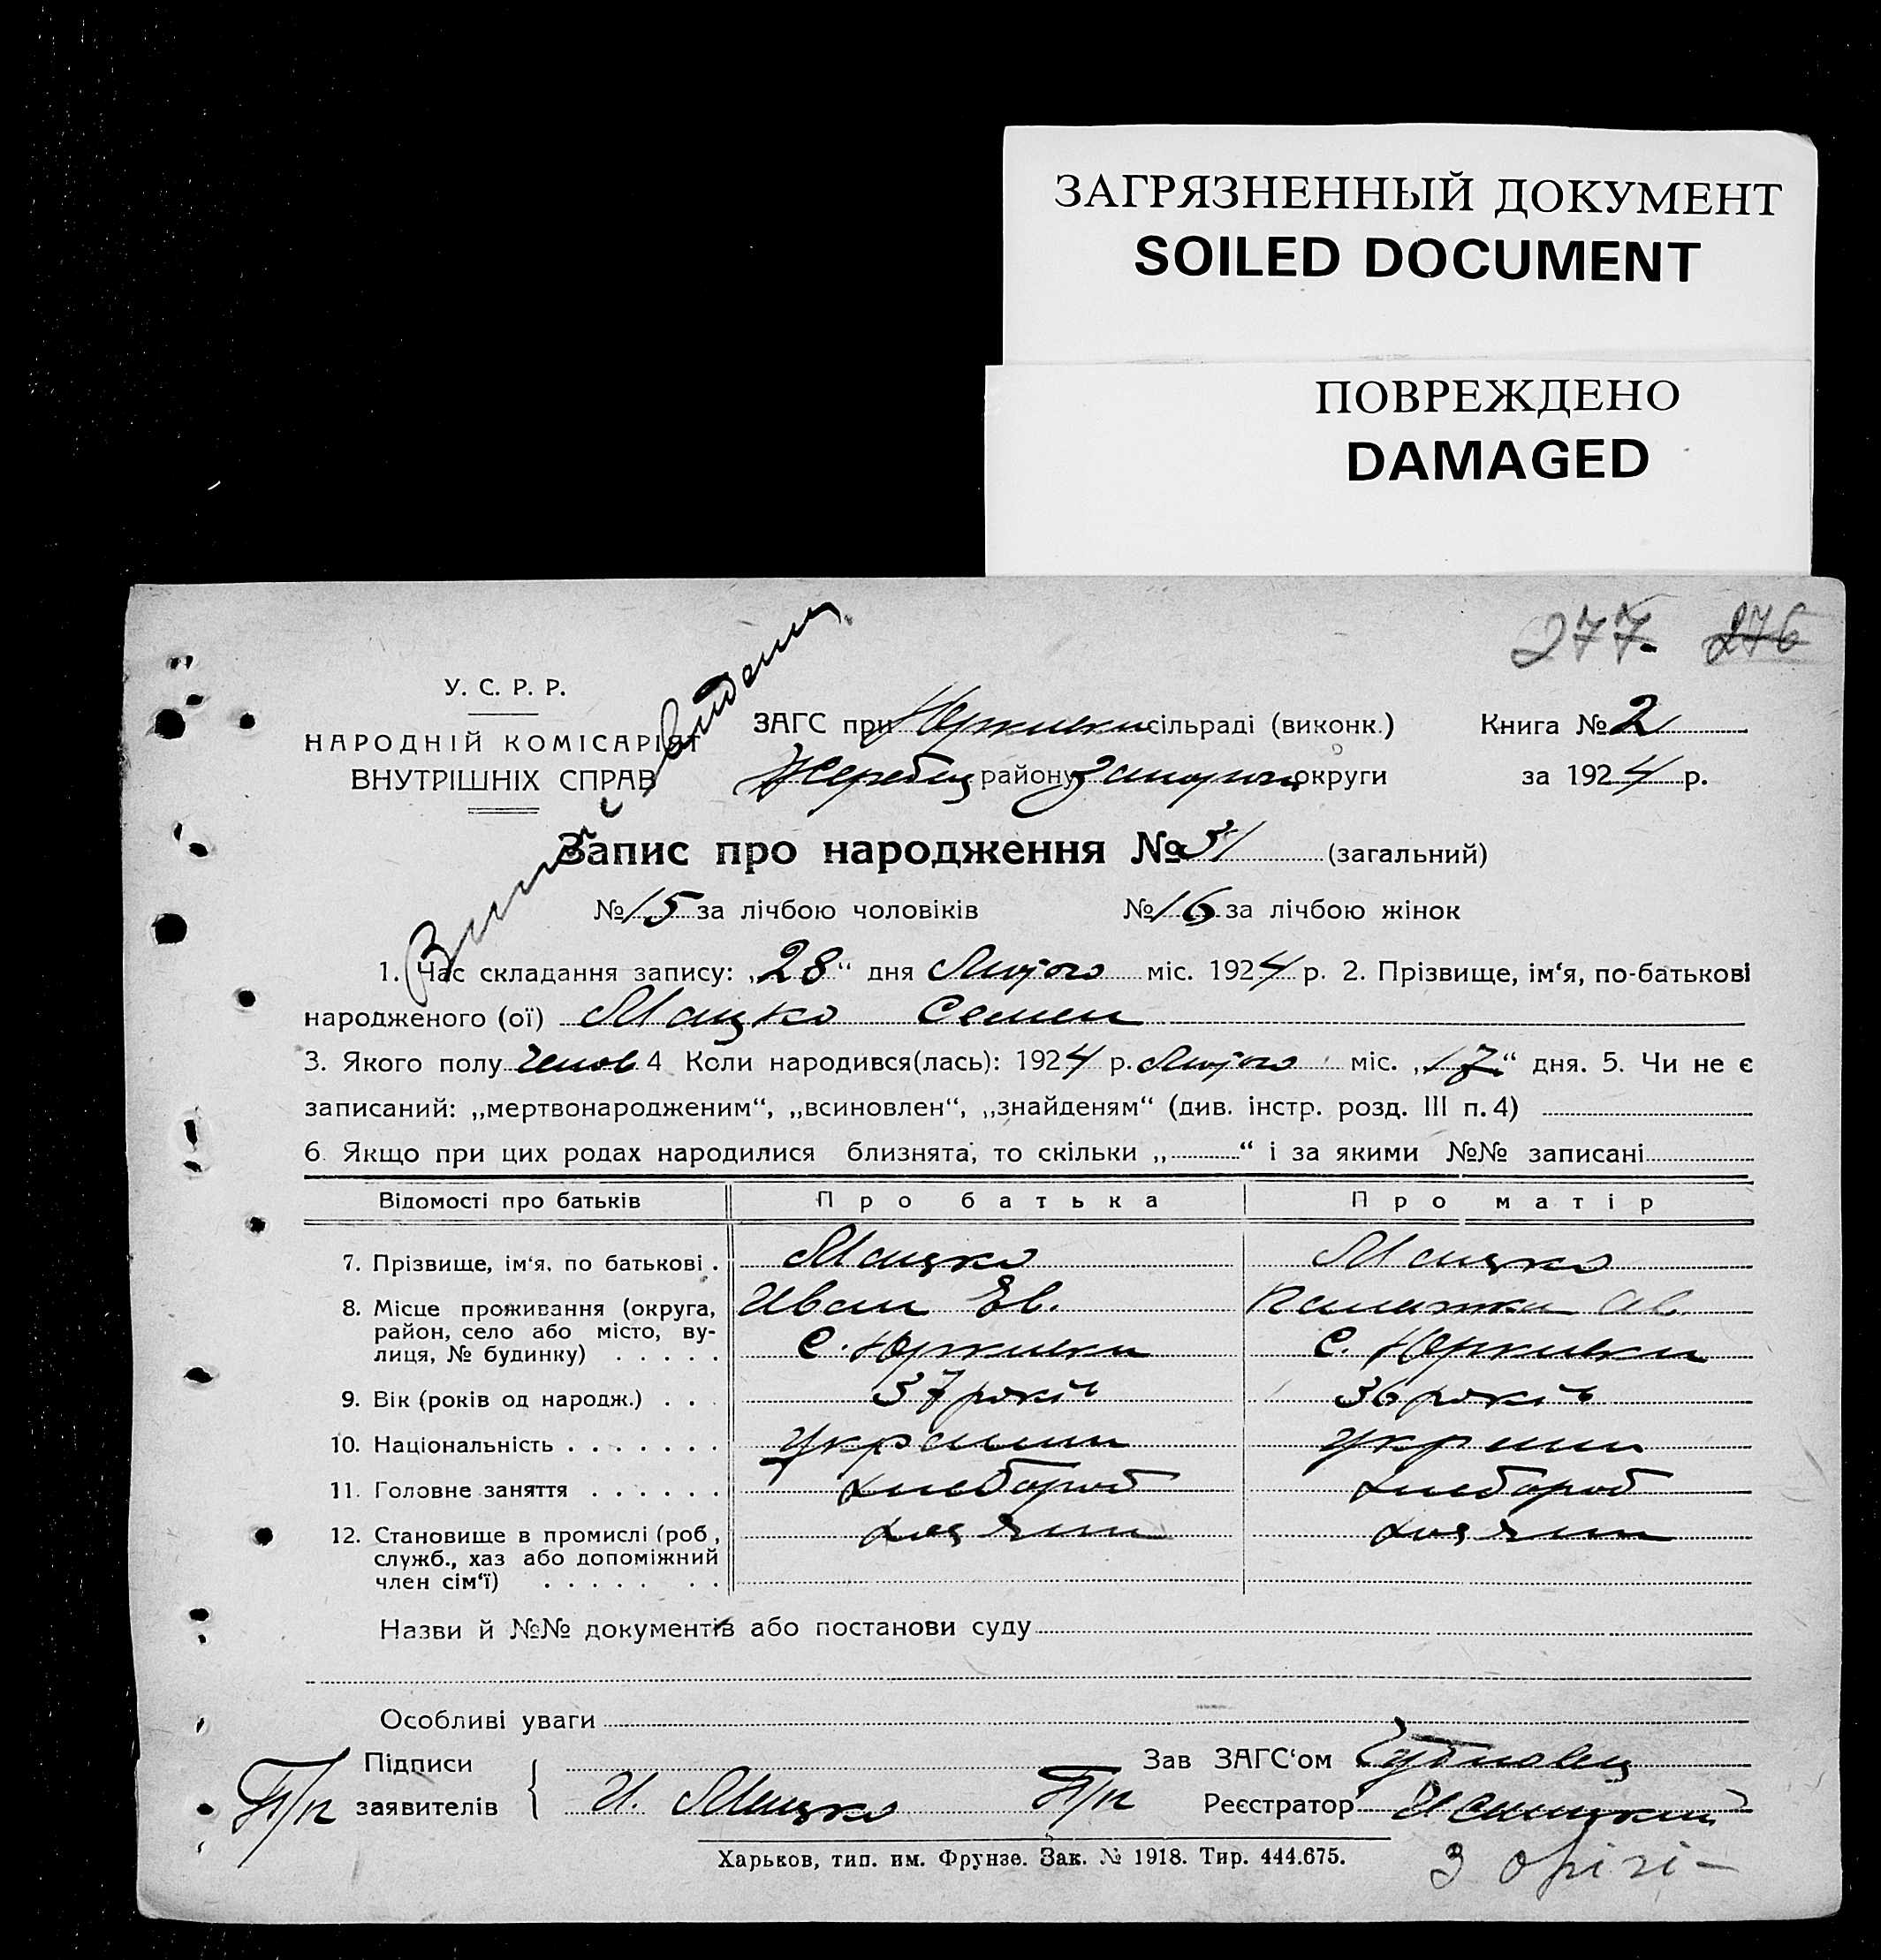 ЗАГРЯЗНЕННЫЙ ДОКУМЕНТ
SOILED DOCUMENT
ПОВРЕЖДЕНО
DAMAGED
277. 276
У. С. Р. Р.
НАРОДНІЙ КОМІСАРІЯТ
ВНУТРІШНІХ СПРАВ
ЗАГС при Юркивки сільраді (виконк.) Книга № 2
Жеребец району Запориж округи за 1924 р.
Запис про народження № 31 (загальний)
№ 15 за лічбою чоловіків № 16 за лічбою жінок
1. Час складання запису: „28“ дня Лютого міс. 1924 р. 2. Прізвище, ім‘я, по-батькові
народженого (ої) Мацко Семен
3. Якого полу Чолов 4 Коли народився(лась): 1924 р. Лютого міс. „17“ дня. 5. Чи не є
записаний: „мертвонародженим“, „всиновлен“, „знайденям“ (див. інстр. розд. III п. 4)
6. Якщо при цих родах народилися близнята, то скільки „ “ і за якими №№ записані
Відомості про батьків Про батька Про матір
7. Прізвище, ім‘я, по батькові . Мацко Мацко
8. Місце проживання (округа, Иван Ев.
район, село або місто, ву-
лиця, № будинку) . . . . . С. Юркивки С. Юркивки
9. Вік (років од народж.) . . . 37 років 36 років
10. Національність . . . . . . . Украинц Украин
11. Головне заняття . . . . . . хлебороб хлебороб
12. Становище в промислі (роб, хозяин хозяин
служб., хаз або допоміжний
член сім‘ї) . . . . . . .
Назви й №№ документів або постанови суду
Особливі уваги
Підписи Зав ЗАГС‘ом
П/п заявителів И. Мацко П/п Реєстратор
Харьков, тип. им. Фрунзе. Зак. № 1918. Тир. 444.675.